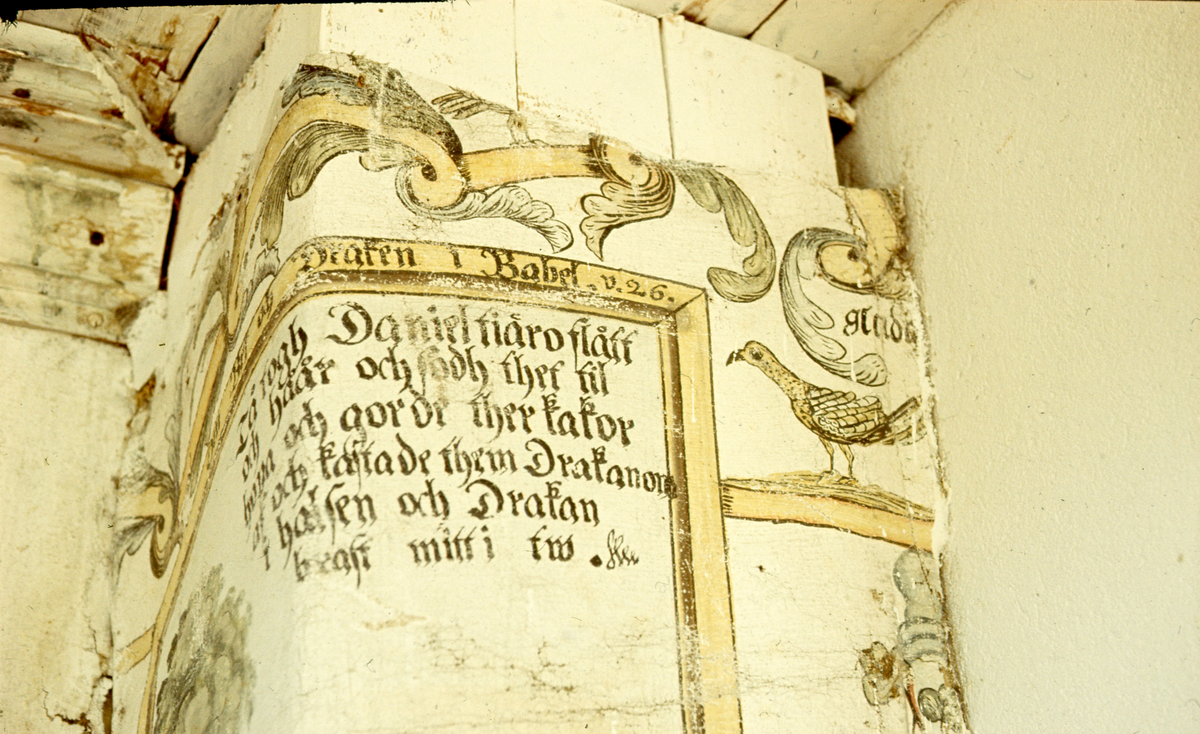 Draken i Babel. v. 26.
Tå togh Daniel tiäro flått
och håår och sodh thet til
hopa och gorde ther kakor
af och kastade them Drakanom
i halsen och Drakan
brast mitt i tw.